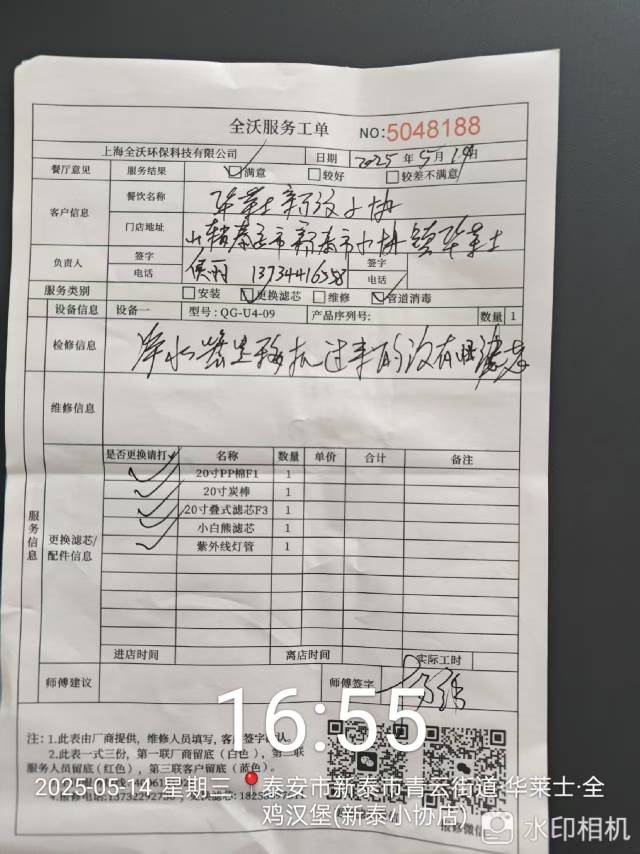 全沃服务工单 NO:5048188
上海全沃环保科技有限公司 日期 2025年5月14日
餐厅意见 服务结果 满意 较好 较差不满意
客户信息 餐饮名称 华莱士新汶小协
门店地址 山东泰安市新泰市小协镇华莱士
负责人 签字 侯丽 签字
电话 电话
服务类别 安装 更换滤芯 维修 管道消毒
设备信息 设备一 型号:QG-U4-09 产品序列号: 数量 1
检修信息 净水器是移机过来的没有旧滤芯
维修信息
服务信息
更换滤芯/配件信息
是否更换请打✓ 名称 数量 单价 合计 备注
✓ 20寸PP棉F1 1
✓ 20寸炭棒 1
✓ 20寸叠式滤芯F3 1
✓ 小白熊滤芯 1
✓ 紫外线灯管 1
进店时间 离店时间 实际工时
师傅建议 师傅签字
16:55
注:1.此表由厂商提供,维修人员填写,客户签字确认。
2.此表一式三份,第一联厂商留底(白色),第二联
服务人员留底(红色),第三联客户留底(蓝色)。
2025-05-14 星期三 泰安市新泰市青云街道·华莱士·全
鸡汉堡(新泰小协店)
报修微信
水印相机